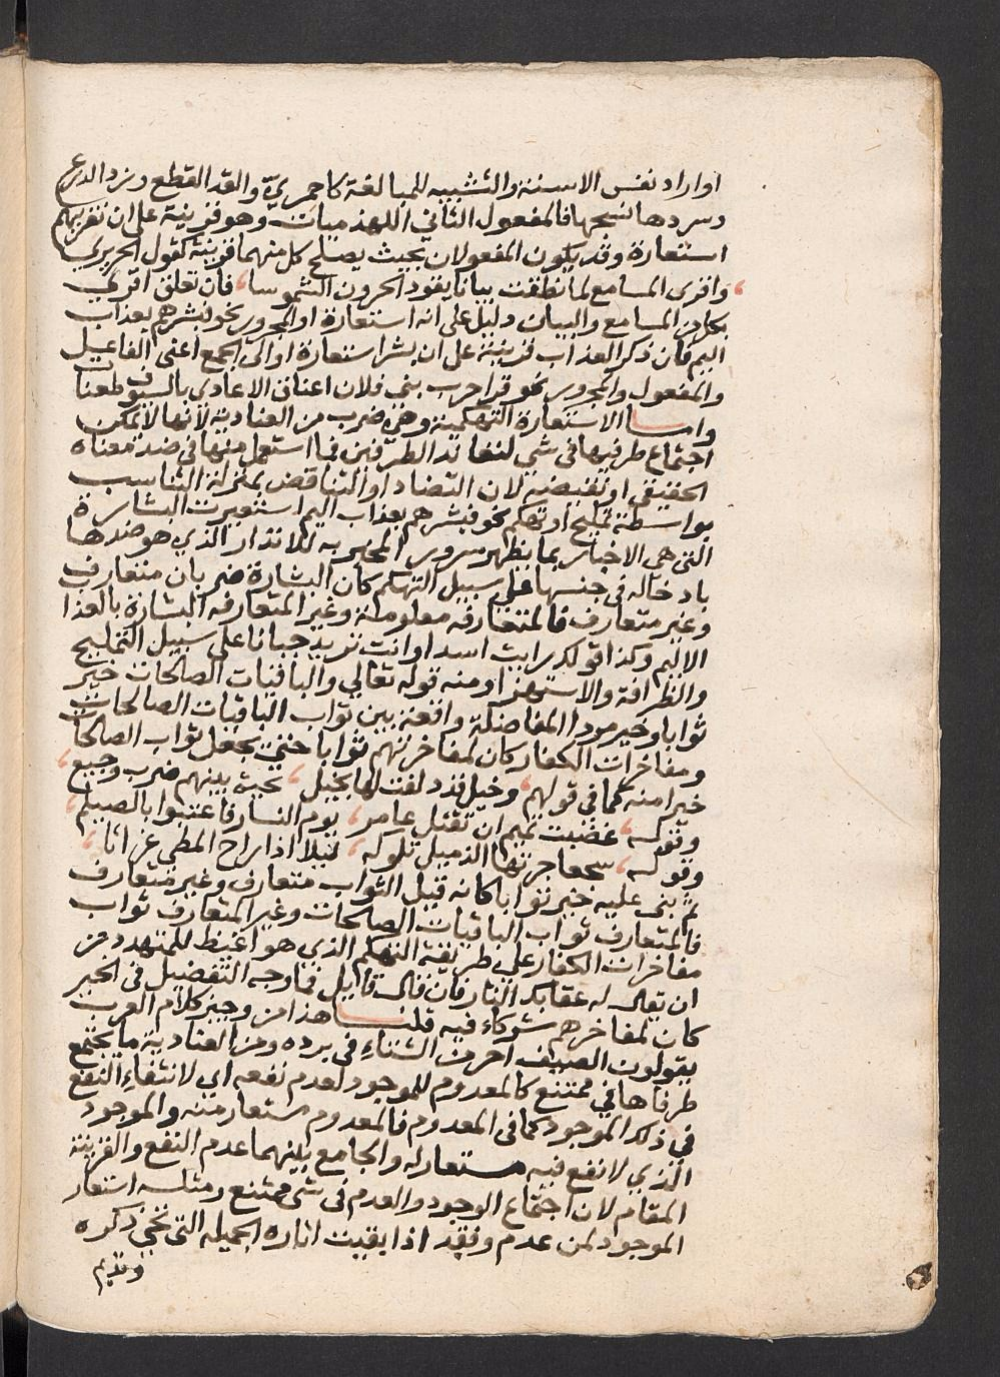 او اراد نفس الاسنة والتشبيه للمبالغة كاحمريّ والقد القطع وزرد الدرع
وسردها نسجها فالمفعول الثاني اللهذميات وهو قرينة على ان نقريهم
استعارة وقد يكون المفعولان بحيث يصلح كل منهما قرينة كقول الحريري
، واقرى المسامع لما نطقت بيانا يقود الحرون الشموسا ، فان تعلق اقرى
بكل من المسامع والبيان دليل على انه استعارة او المجرور نحو فبشرهم بعذاب
اليم فان ذكر العذاب قرينة على ان بشر استعارة او الى الجمع اعنى الفاعيل
والمفعول والمجرور نحو قرا حرب بنى فلان اعناق الاعادي بالسيوف طعنات
واما الاستعارة التهكمية وهى ضرب من العنادية لانها لا يمكن
اجتماع طرفيها في شي لتعاند الطرفين فيما استعمل منها في ضد معناه
الحقيقي او نقيضه لان التضاد او التناقض بمنزلة التناسب
بواسطة تمليح او تهكم نحو فبشرهم بعذاب اليم استعيرت البشارة
التى هى الاخبار بما يظهر سرور المخبر به للانذار الذي هو ضدها
بادخاله في جنسها على سبيل التهكم كان البشارة ضربان متعارف
وغير متعارف فالمتعارفه معلومة وغير المتعارفه البشارة بالعذا
الاليم وكذا قولك رايت اسدا وانت تريد جبانا على سبيل التمليح
والظرافة والاستهزا ومنه قوله تعالي والباقيات الصالحات خير
ثوابا وخير مردا المفاضلة واقعة بين ثواب الباقيات الصالحات
ومفاخرات الكفار كان لمفاخرتهم ثوابا حتى يجعل ثواب الصالحات
خيرا منه كما في قولهم ، وخيل قد دلفت لها بخيل ، تحية بينهم ضرب وجيع ،
وقوله ، غضبت تميم ان تقتل عامر ، يوم النسار فاعتبوا بالصيلم ،
وقوله ، سجعا جرتها الذميل تلوكه ، ليلا اذا راح المطي غراثا ،
ثم بنى عليه خير ثوابا كانه قيل الثواب متعارف وغير متعارف
فالمتعارف ثواب الباقيات الصالحات وغير المتعارف ثواب
مفاخرات الكفار على طريقة التهكم الذي هو اغيظ للمتهدد من
ان يقال له عقابك النار فان قال قايل فما وجه التفضيل في الخير
كان لمفاخرهم شركاء فيه قلنا هذا من وجيز كلام العرب
يقولون الصيف احر من الشتاء في برده ومن العنادية ما يجتمع
طرفاها في ممتنع كالمعدوم للموجود لعدم نفعه اي لانتفاء النفع
في ذلك الموجود كما في المعدوم فالمعدوم مستعار منه والموجود
الذي لا نفع فيه مستعار له والجامع بينهما عدم النفع والقرينة
المقام لان اجتماع الوجود والعدم في شي ممتنع ومثله استعار
الموجود لمن عدم وفقد اذا بقيت اثاره الجميله التى تحيي ذكره
وتديم